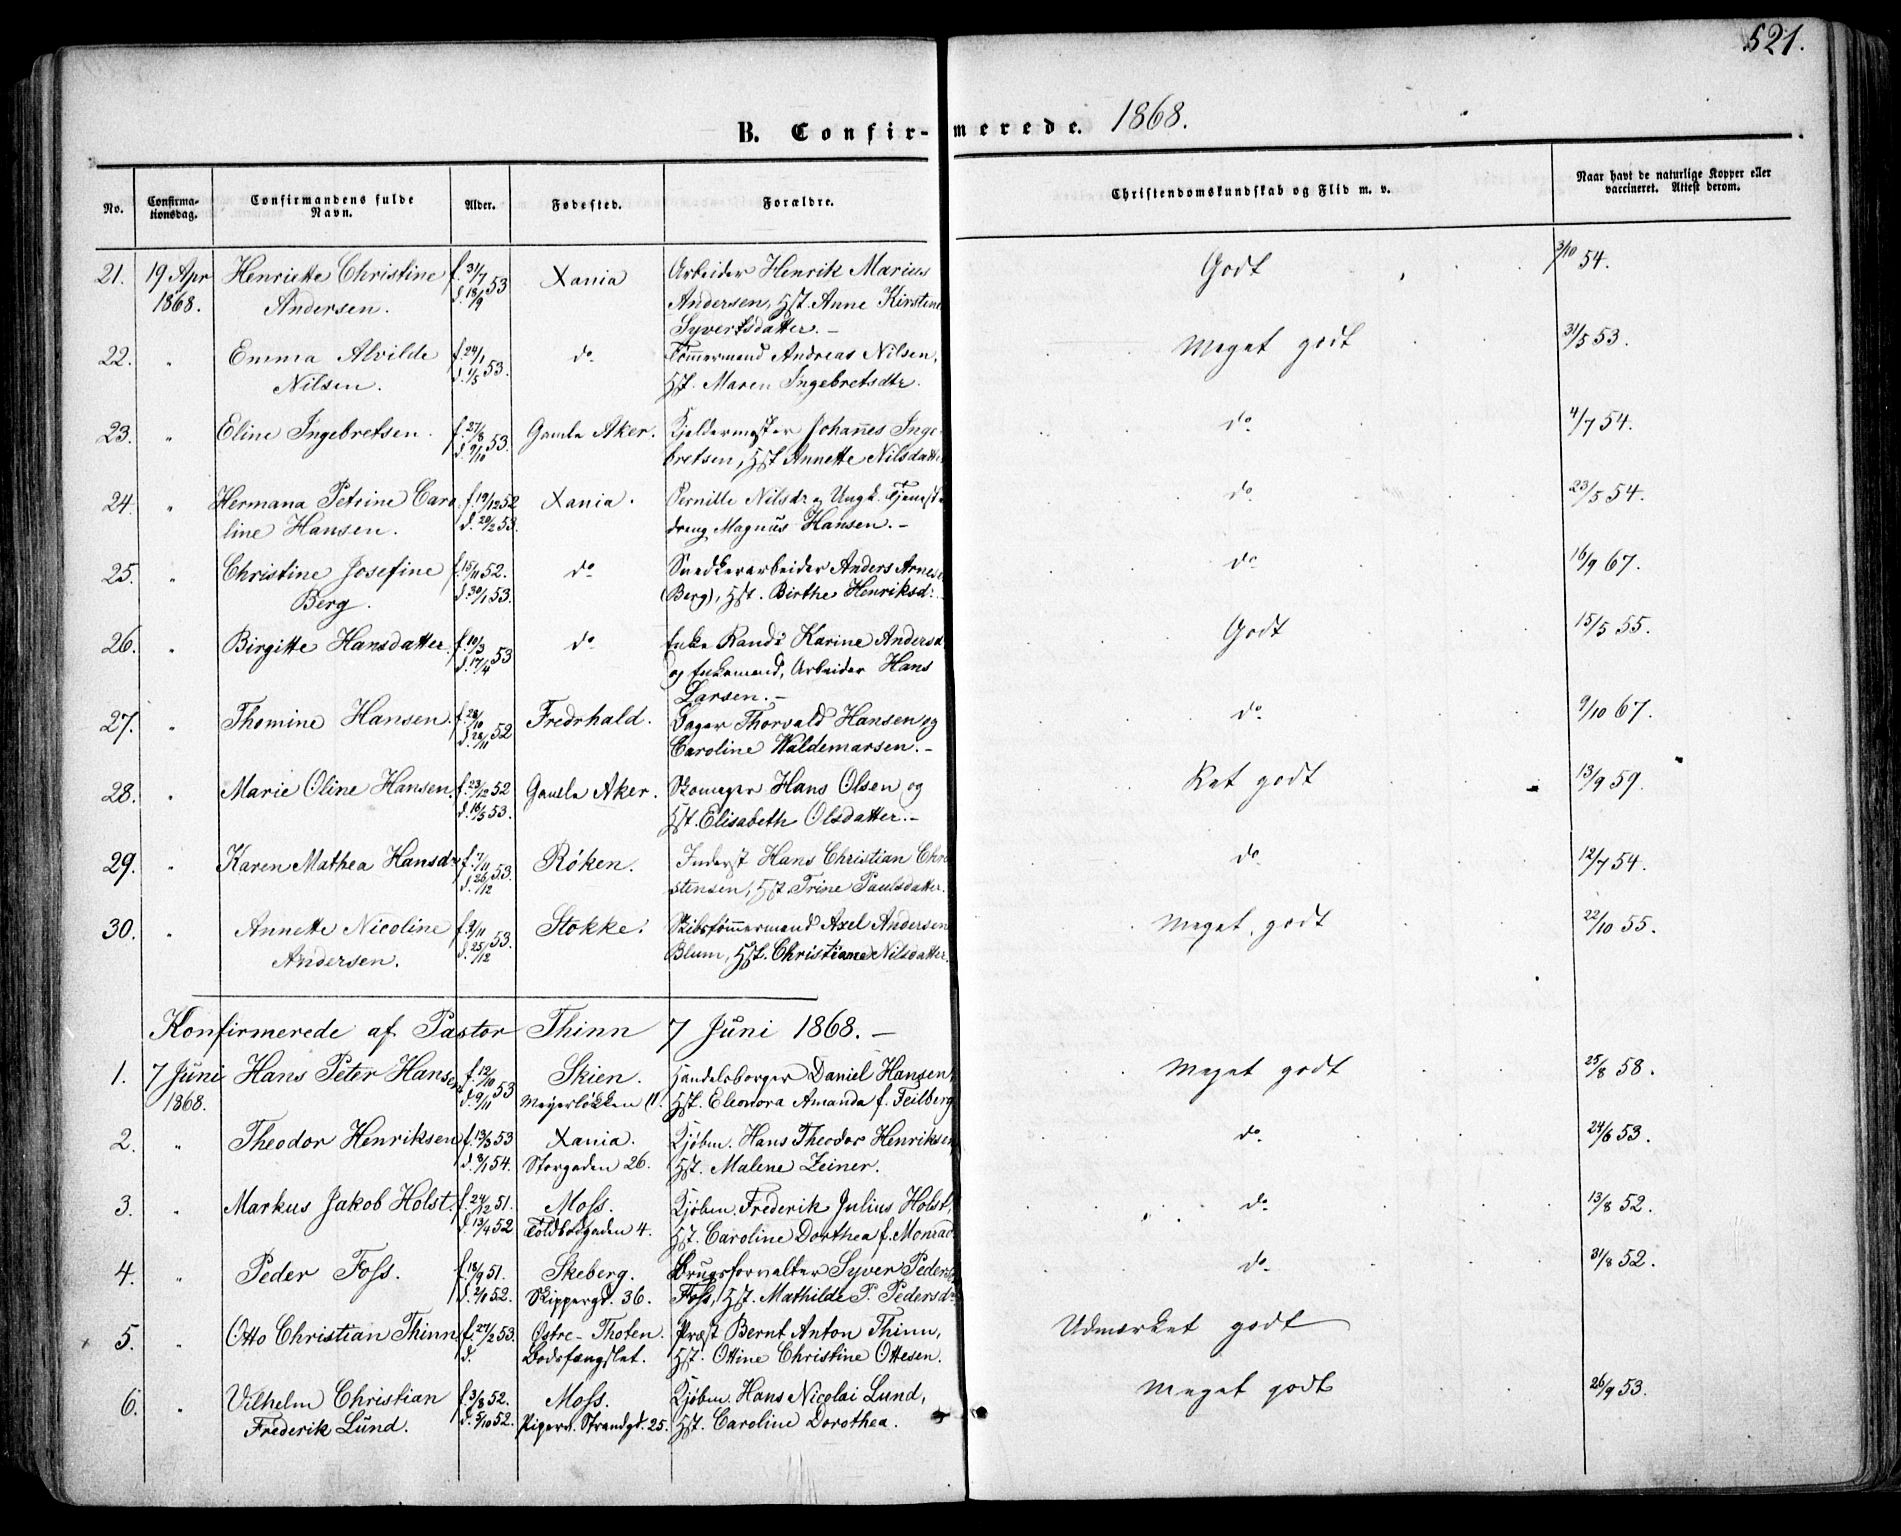 521.
B. Confir- merede. 1868.
No. Confirma-tionsdag. Confirmandens fulde Navn. Alder. Fødested. Forældre. Christendomskundskab og Flid m. v. Naar havt de naturlige Kopper eller vaccineret. Attest derom.
21. 19 Apr Henriette Christine f. 31/7 53 Xania Arbeider Henrik Marius Godt 3/10 54.
1868. Andersen. d. 18/9 Andersen, Hst. Anne Kirstine
Syvertsdatter. –
22. " Emma Alvilde f. 24/1 53. do Tømmermand Andreas Nilsen, Meget godt 31/5 53.
Nilsen. d. 1/5 Hst. Maren Ingebretsdtr.
23. " Eline Ingebretsen. f. 27/8 53. Gamle Aker. Kjeldermester Johannes Inge- do 4/7 54.
d. 9/10 bretsen, Hst Annette Nilsdatter
24. " Hermana Petrine Caro f. 19/12 52 Xania. Pernille Nilsdr og Ungk. Tjeneste do 23/5 54.
line Hansen. d. 20/2 53. dreng Magnus Hansen. –
25. " Christine Josefine f. 15/11 52. do Snedkerarbeider Anders Arnesen do 16/9 67.
Berg. d. 30/1 53. (Berg), Hst. Birthe Henriksd.
26. " Birgitte Hansdatter f. 10/3 53 do Enke Randi Karine Andersd Godt 15/5 55.
d. 17/4 og Enkemand, Arbeider Hans
Larsen. –
27. " Thomine Hansen. f. 28/10 52 Fredrhald. Bager Thorvald Hansen og do 9/10 67.
d. 28/11 Caroline Waldemarsen. –
28. " Marie Oline Hansen. f. 23/12 52 Gamle Aker. Skomager Hans Olsen og Ret godt 13/9 59.
d. 16/5 53. Hst. Elisabeth Olsdatter. –
29. " Karen Mathea Hansdr f. 7/11 53. Røken. Inderst Hans Christian Chri do 12/7 54.
d. 26/12 stensen, Hst. Trine Paulsdatter.
30. " Annette Nicoline f. 9/11 53. Stokke. Skibstømmermand Axel Andersen Meget godt 22/10 55.
Andersen. d. 25/12 Blum, Hst. Christiane Nilsdatter.
Konfirmerede af Pastor Thinn 7 Juni 1868. –
1. 7 Juni Hans Peter Hansen f. 12/10 53 Skien. Handelsborger Daniel Hansen, Meget godt 25/8 58.
1868. d. 9/11 Meyerløkken 11. Hst. Eleonora Amanda f. Feilberg
2. " Theodor Henriksen f. 13/3 53 Xania. Kjøbm. Hans Theodor Henriksen, do 24/6 53.
d. 8/1 54. Storgaden 26. Hst. Malene Zeiner.
3. " Markus Jakob Holst. f. 24/12 51. Moss. Kjøbm. Frederik Julius Holst, do 13/8 52.
d. 13/4 52 Toldbodgaden 4. Hst. Caroline Dorthea f. Monrad
4. " Peder Foss. f. 18/9 51. Skeberg. Brugsforvalter Syver Pedersen do 31/8 52.
d. 2/1 52. Skippergd. 36. Foss, Hst. Mathilde P. Pedersdr
5. " Otto Christian Thinn f. 27/2 53. Østre-Thoten. Præst Bernt Anton Thinn, Udmærket godt
d. Bodsfængslet. Hst. Ottine Christine Ottesen.
6. " Vilhelm Christian f. 3/8 52. Moss. Kjøbm. Hans Nicolai Lund, Meget godt 26/9 53.
Frederik Lund. d. 5/10 52. Piperv. Strandgd. 25. Hst. Caroline Dorothea.